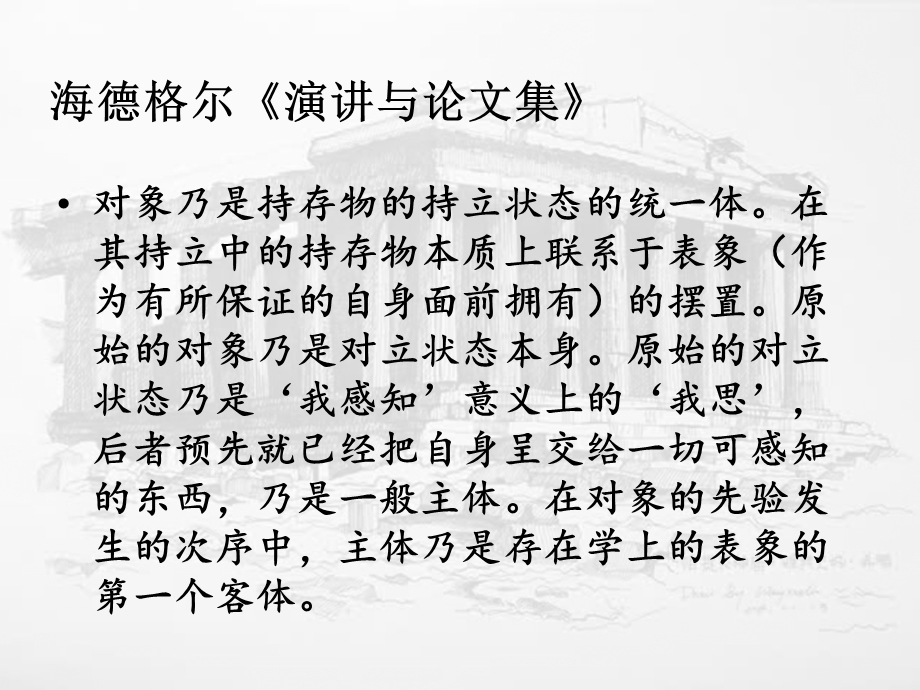 海德格尔《演讲与论文集》
• 对象乃是持存物的持立状态的统一体。在
其持立中的持存物本质上联系于表象（作
为有所保证的自身面前拥有）的摆置。原
始的对象乃是对立状态本身。原始的对立
状态乃是‘我感知’意义上的‘我思’，
后者预先就已经把自身呈交给一切可感知
的东西，乃是一般主体。在对象的先验发
生的次序中，主体乃是存在学上的表象的
第一个客体。